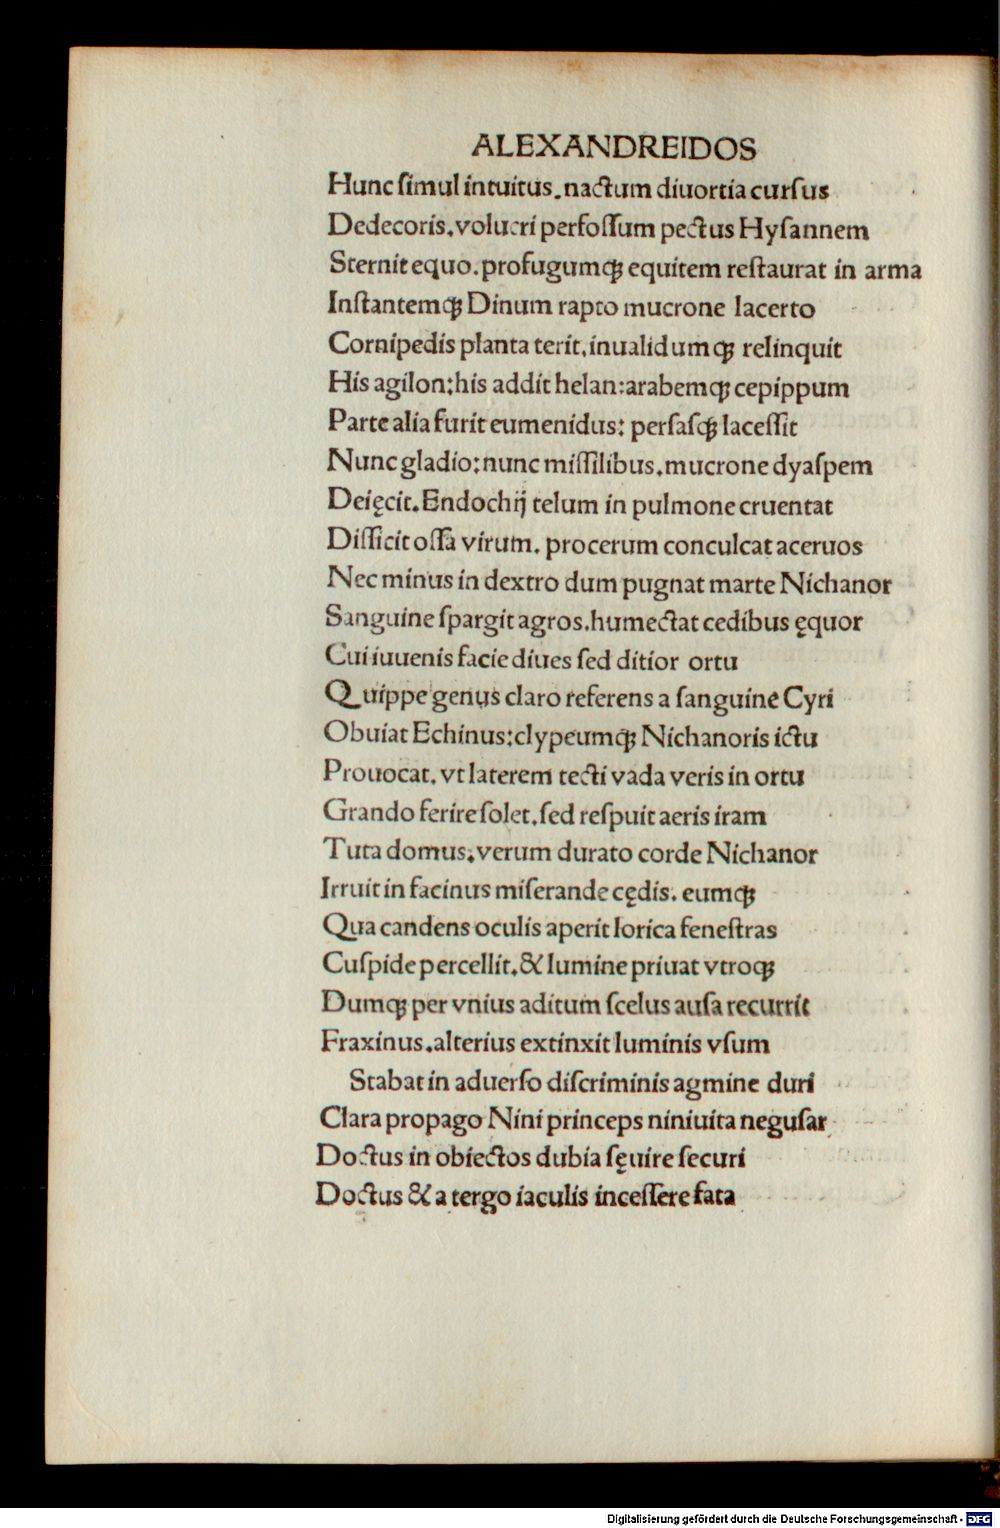 ALEXANDREIDOS
Hunc ſimul intuitus. nactum diuortia curſus
Dedecoris. volucri perfoſſum pectus Hyſannem
Sternit equo. profugumqꝫ equitem reſtaurat in arma
Inſtantemqꝫ Dinum rapto mucrone lacerto
Cornipedis planta terit. inualidumqꝫ relinquit
His agilon: his addit helan: arabemqꝫ cepippum
Parte alia furit eumenidus: perſaſqꝫ laceſſit
Nunc gladio: nunc miſſilibus. mucrone dyaſpem
Deięcit. Endochij telum in pulmone cruentat
Diſſicit oſſa virum. procerum conculcat aceruos
Nec minus in dextro dum pugnat marte Nichanor
Sanguine ſpargit agros. humectat cedibus ęquor
Cui iuuenis facie diues ſed ditior ortu
Quippe genus claro referens a ſanguine Cyri
Obuiat Echinus: clypeumqꝫ Nichanoris ictu
Prouocat. vt laterem tecti vada veris in ortu
Grando ferire ſolet. ſed reſpuit aeris iram
Tuta domus. verum durato corde Nichanor
Irruit in facinus miſerande cędis. eumqꝫ
Qua candens oculis aperit lorica feneſtras
Cuſpide percellit. & lumine priuat vtroqꝫ
Dumqꝫ per vnius aditum ſcelus auſa recurrit
Fraxinus. alterius extinxit luminis vſum
Stabat in aduerſo diſcriminis agmine duri
Clara propago Nini princeps niniuita neguſar
Doctus in obiectos dubia ſęuire ſecuri
Doctus & a tergo iaculis inceſſere fata
Digitalisierung gefördert durch die Deutsche Forschungsgemeinschaft - DFG